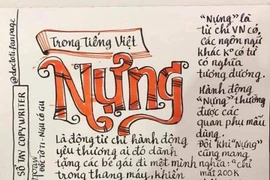 @docloi.funimage
SỔ TAY COPYWRITER
ĐỐT 1071 - NGỤ CƯ GÚ
Trong Tiếng Việt
Nựng
Là động từ chỉ hành động
yêu thương ai đó dành
tặng các bé gái đi một mình
trong thang máy, khiến
"Nựng" là
từ chỉ VN có,
các ngôn ngữ
khác K° từ
có nghĩa
tương đương.
Hành động
"Nựng" thường
được các
quan phụ mẫu
dùng.
Đôi khi "Nựng"
cũng mang
nghĩa: "chỉ
mất 200K